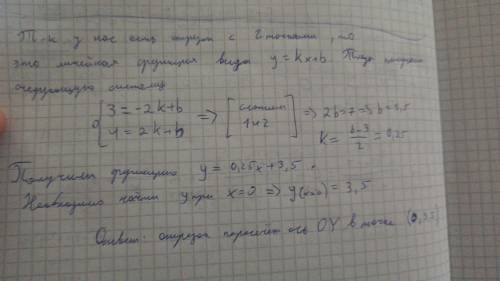 Т.к у нас есть отрезок с 2 точками, то
это линейная функция вида y = kx+b. Тогда получаем
следующую систему
{ 3 = -2k+b
4 = 2k+b => [ сложим 1 и 2 ] => 2b=7 => b=3,5
k = (b-3)/2 = 0,25
Получили функцию y = 0,25x+3,5.
Необходимо найти y при x=0 => y(x=0) = 3,5
Ответ: отрезок пересечёт ось OY в точке (0,3.5)